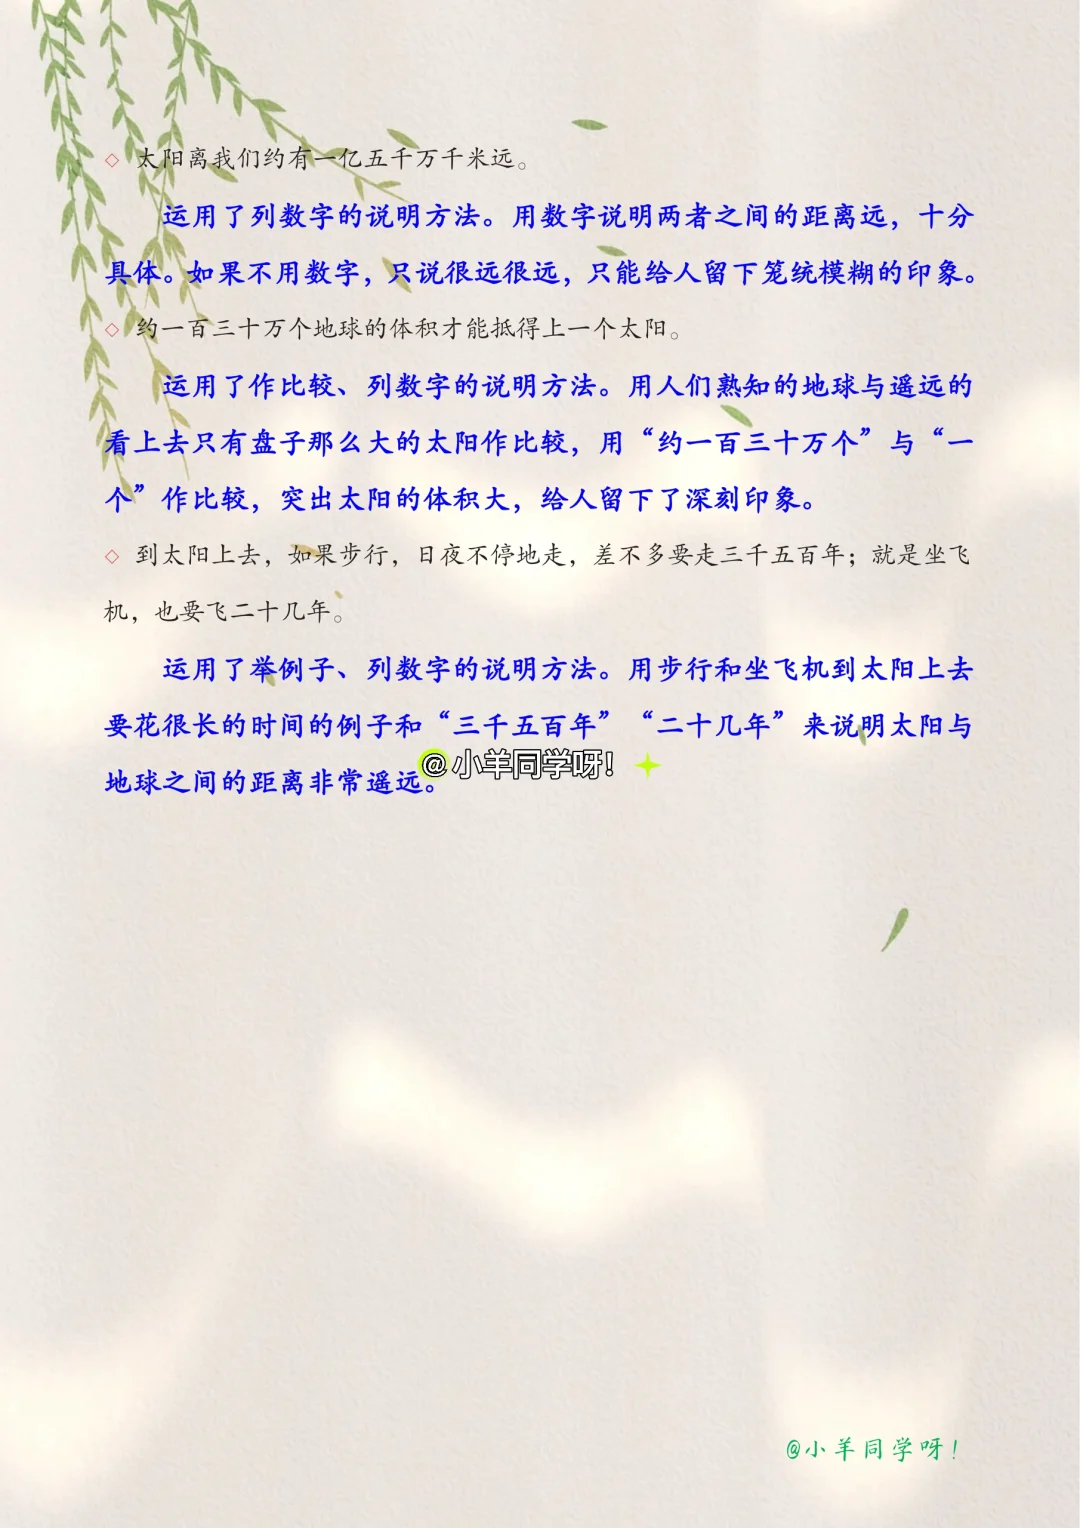 ◇ 太阳离我们约有一亿五千万千米远。
运用了列数字的说明方法。用数字说明两者之间的距离远，十分
具体。如果不用数字，只说很远很远，只能给人留下笼统模糊的印象。
◇ 约一百三十万个地球的体积才能抵得上一个太阳。
运用了作比较、列数字的说明方法。用人们熟知的地球与遥远的
看上去只有盘子那么大的太阳作比较，用“约一百三十万个”与“一
个”作比较，突出太阳的体积大，给人留下了深刻印象。
◇ 到太阳上去，如果步行，日夜不停地走，差不多要走三千五百年；就是坐飞
机，也要飞二十几年。
运用了举例子、列数字的说明方法。用步行和坐飞机到太阳上去
要花很长的时间的例子和“三千五百年”“二十几年”来说明太阳与
地球之间的距离非常遥远。
@小羊同学呀！
@小羊同学呀！